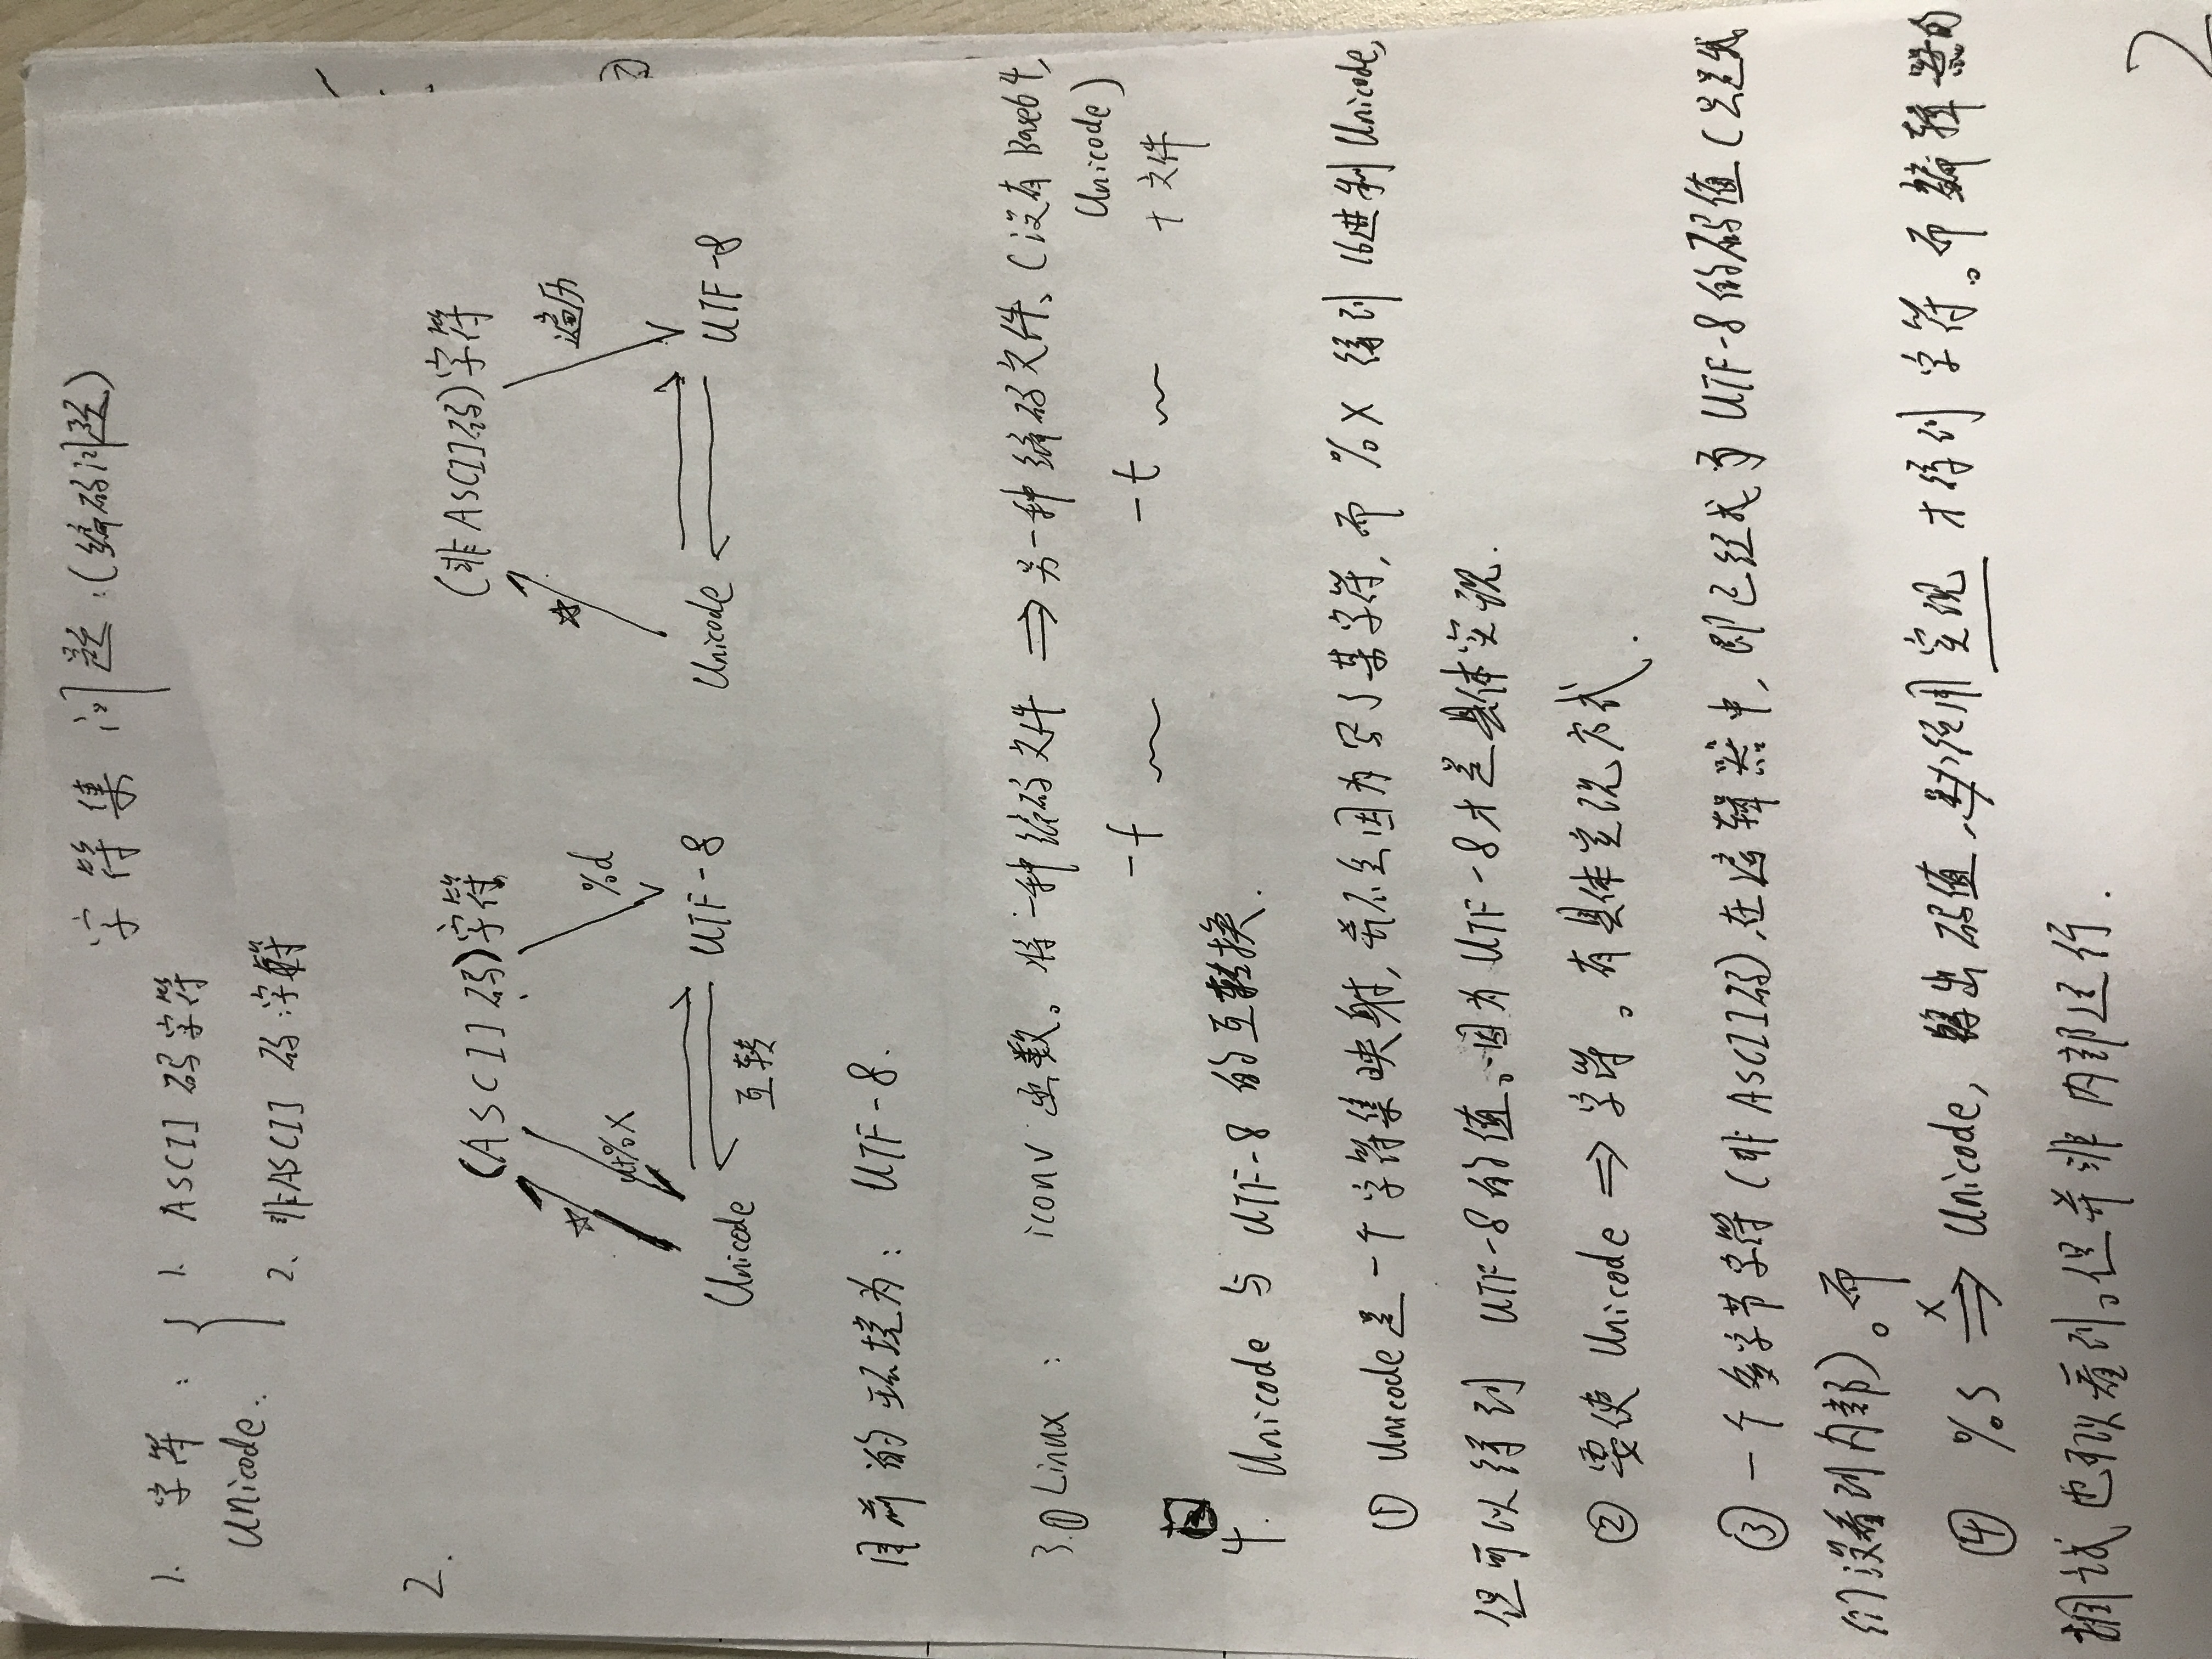 字符集 问题:(编码问题)
1. 字符: 1. ASCII 码字符
Unicode. 2. 非ASCII 码字符
2.
(ASCII码)字符 (非ASCII码)字符
☆ u+%x %d ☆ 遍历
Unicode UTF-8 Unicode UTF-8
互转
目前的环境为: UTF-8.
3.① Linux: iconv 函数。将一种编码文件 ⇒ 另一种编码文件、(没有Base64,
Unicode)
-f -t + 文件
4. Unicode 与 UTF-8 的互转换.
① Unicode是一个字符集映射,并不会因为写了某字符,而 %x 得到 16进制Unicode,
但可以得到 UTF-8的值。因为UTF-8才是具体实现.
② 要使 Unicode ⇒ 字符。有具体实现方式.
③ 一个多字节字符(非ASCII码),在编辑器中,即已经成为UTF-8的码值(只是我
们没看到内部)。而
④ %s ⇒ Unicode, 输出码值,必须用实现才得到字符。而编辑器的
x
调试也可以看到。但并非内部运行.
2